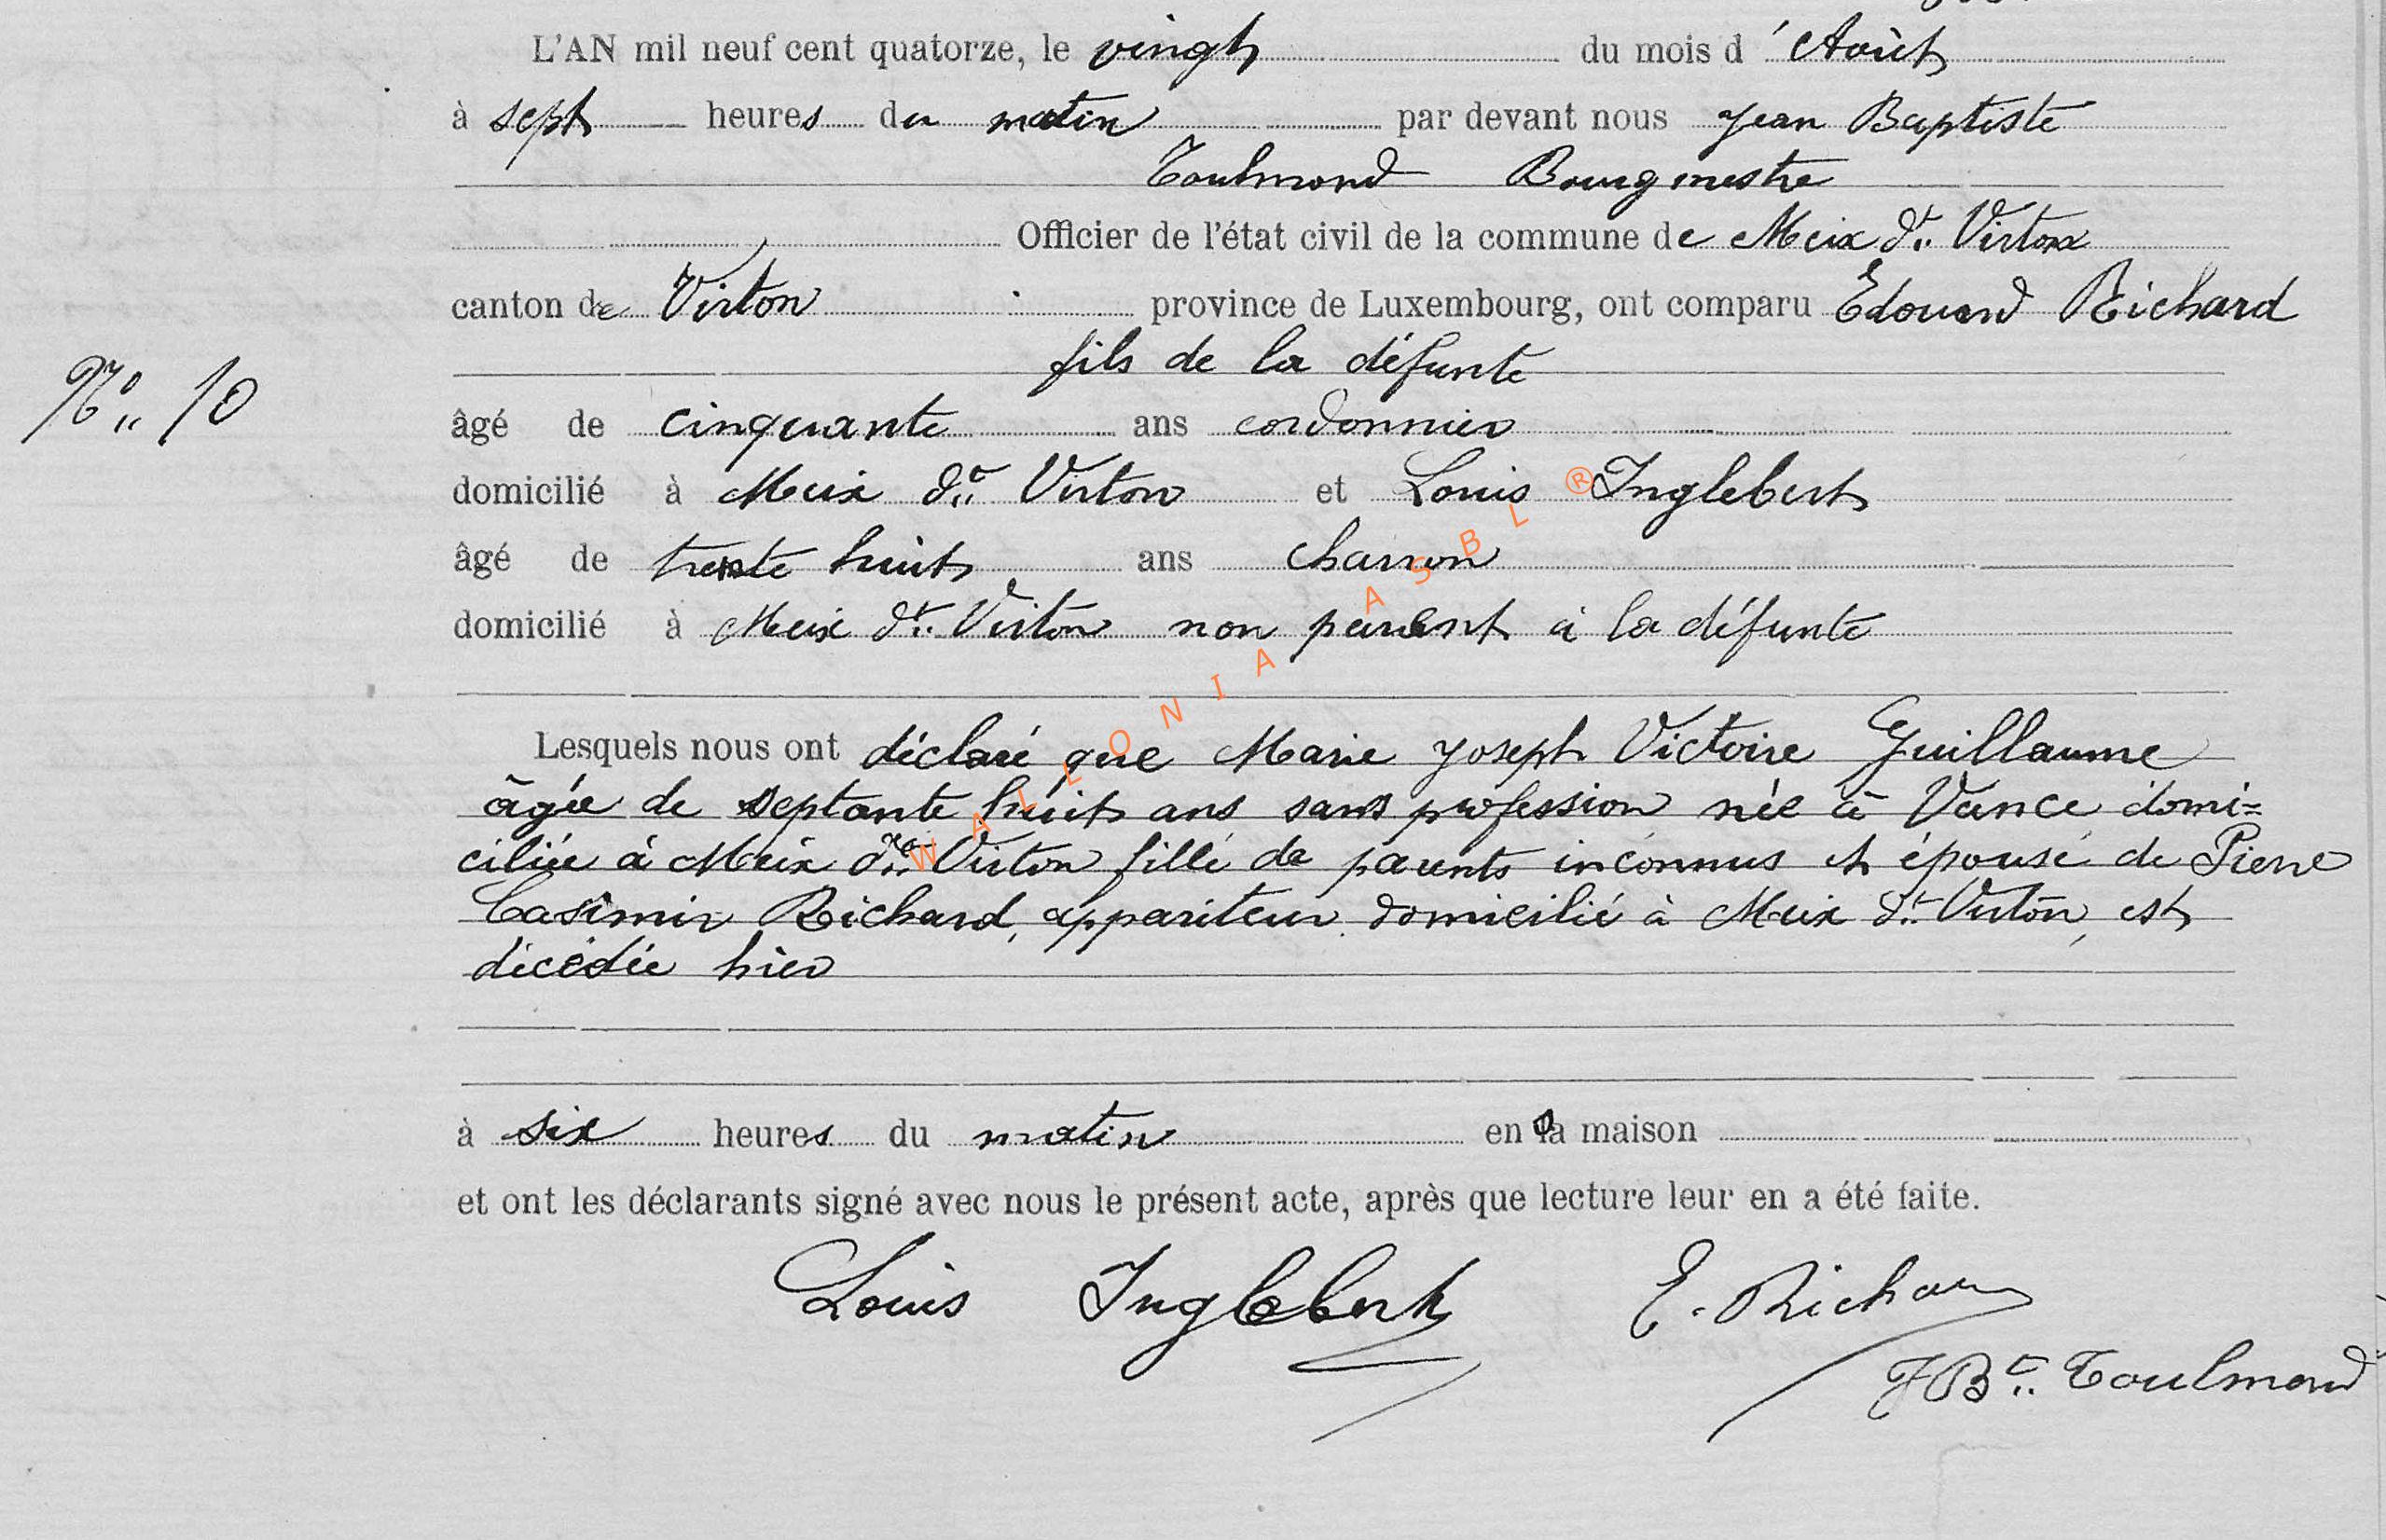 L'AN mil neuf cent quatorze, le vingt du mois d'Août
à sept heures du matin par devant nous Jean Baptiste
Toulmond Bourgmestre
Officier de l'état civil de la commune de Meix dt Virton
canton de Virton province de Luxembourg, ont comparu Edouard Richard
fils de la défunte
No 10
âgé de cinquante ans cordonnier
domicilié à Meix dt Virton et Louis Inglebert
âgé de trente huit ans charron
domicilié à Meix dt Virton non parent à la défunte
Lesquels nous ont déclaré que Marie Joseph Victoire Guillaume
âgée de septante huit ans sans profession née à Vance domi=
ciliée à Meix dt Virton fille de parents inconnus et épouse de Pierre
Casimir Richard, appariteur domicilié à Meix dt Virton, est
décédée hier
à six heures du matin en sa maison
et ont les déclarants signé avec nous le présent acte, après que lecture leur en a été faite.
Louis Inglebert E. Richard
JBte Toulmond
WALLONIA ASBL ®